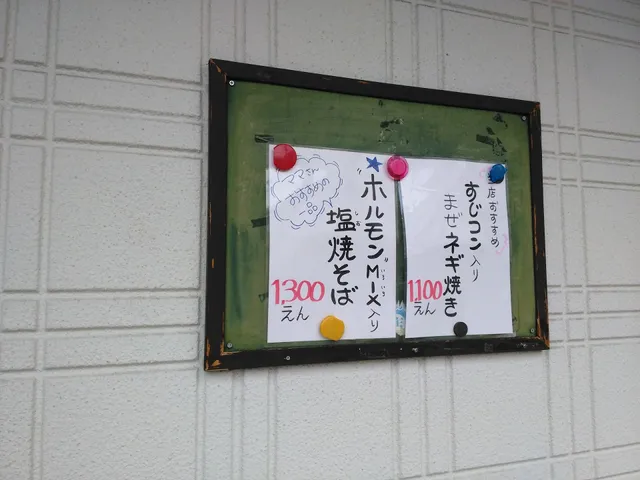 当店おすすめ
すじコン入り
まぜネギ焼き
1,100
えん
★"ホルモンMIX"入り
いろいろ
塩焼そば
しお
1,300
えん
ママさん
おすすめの
一品